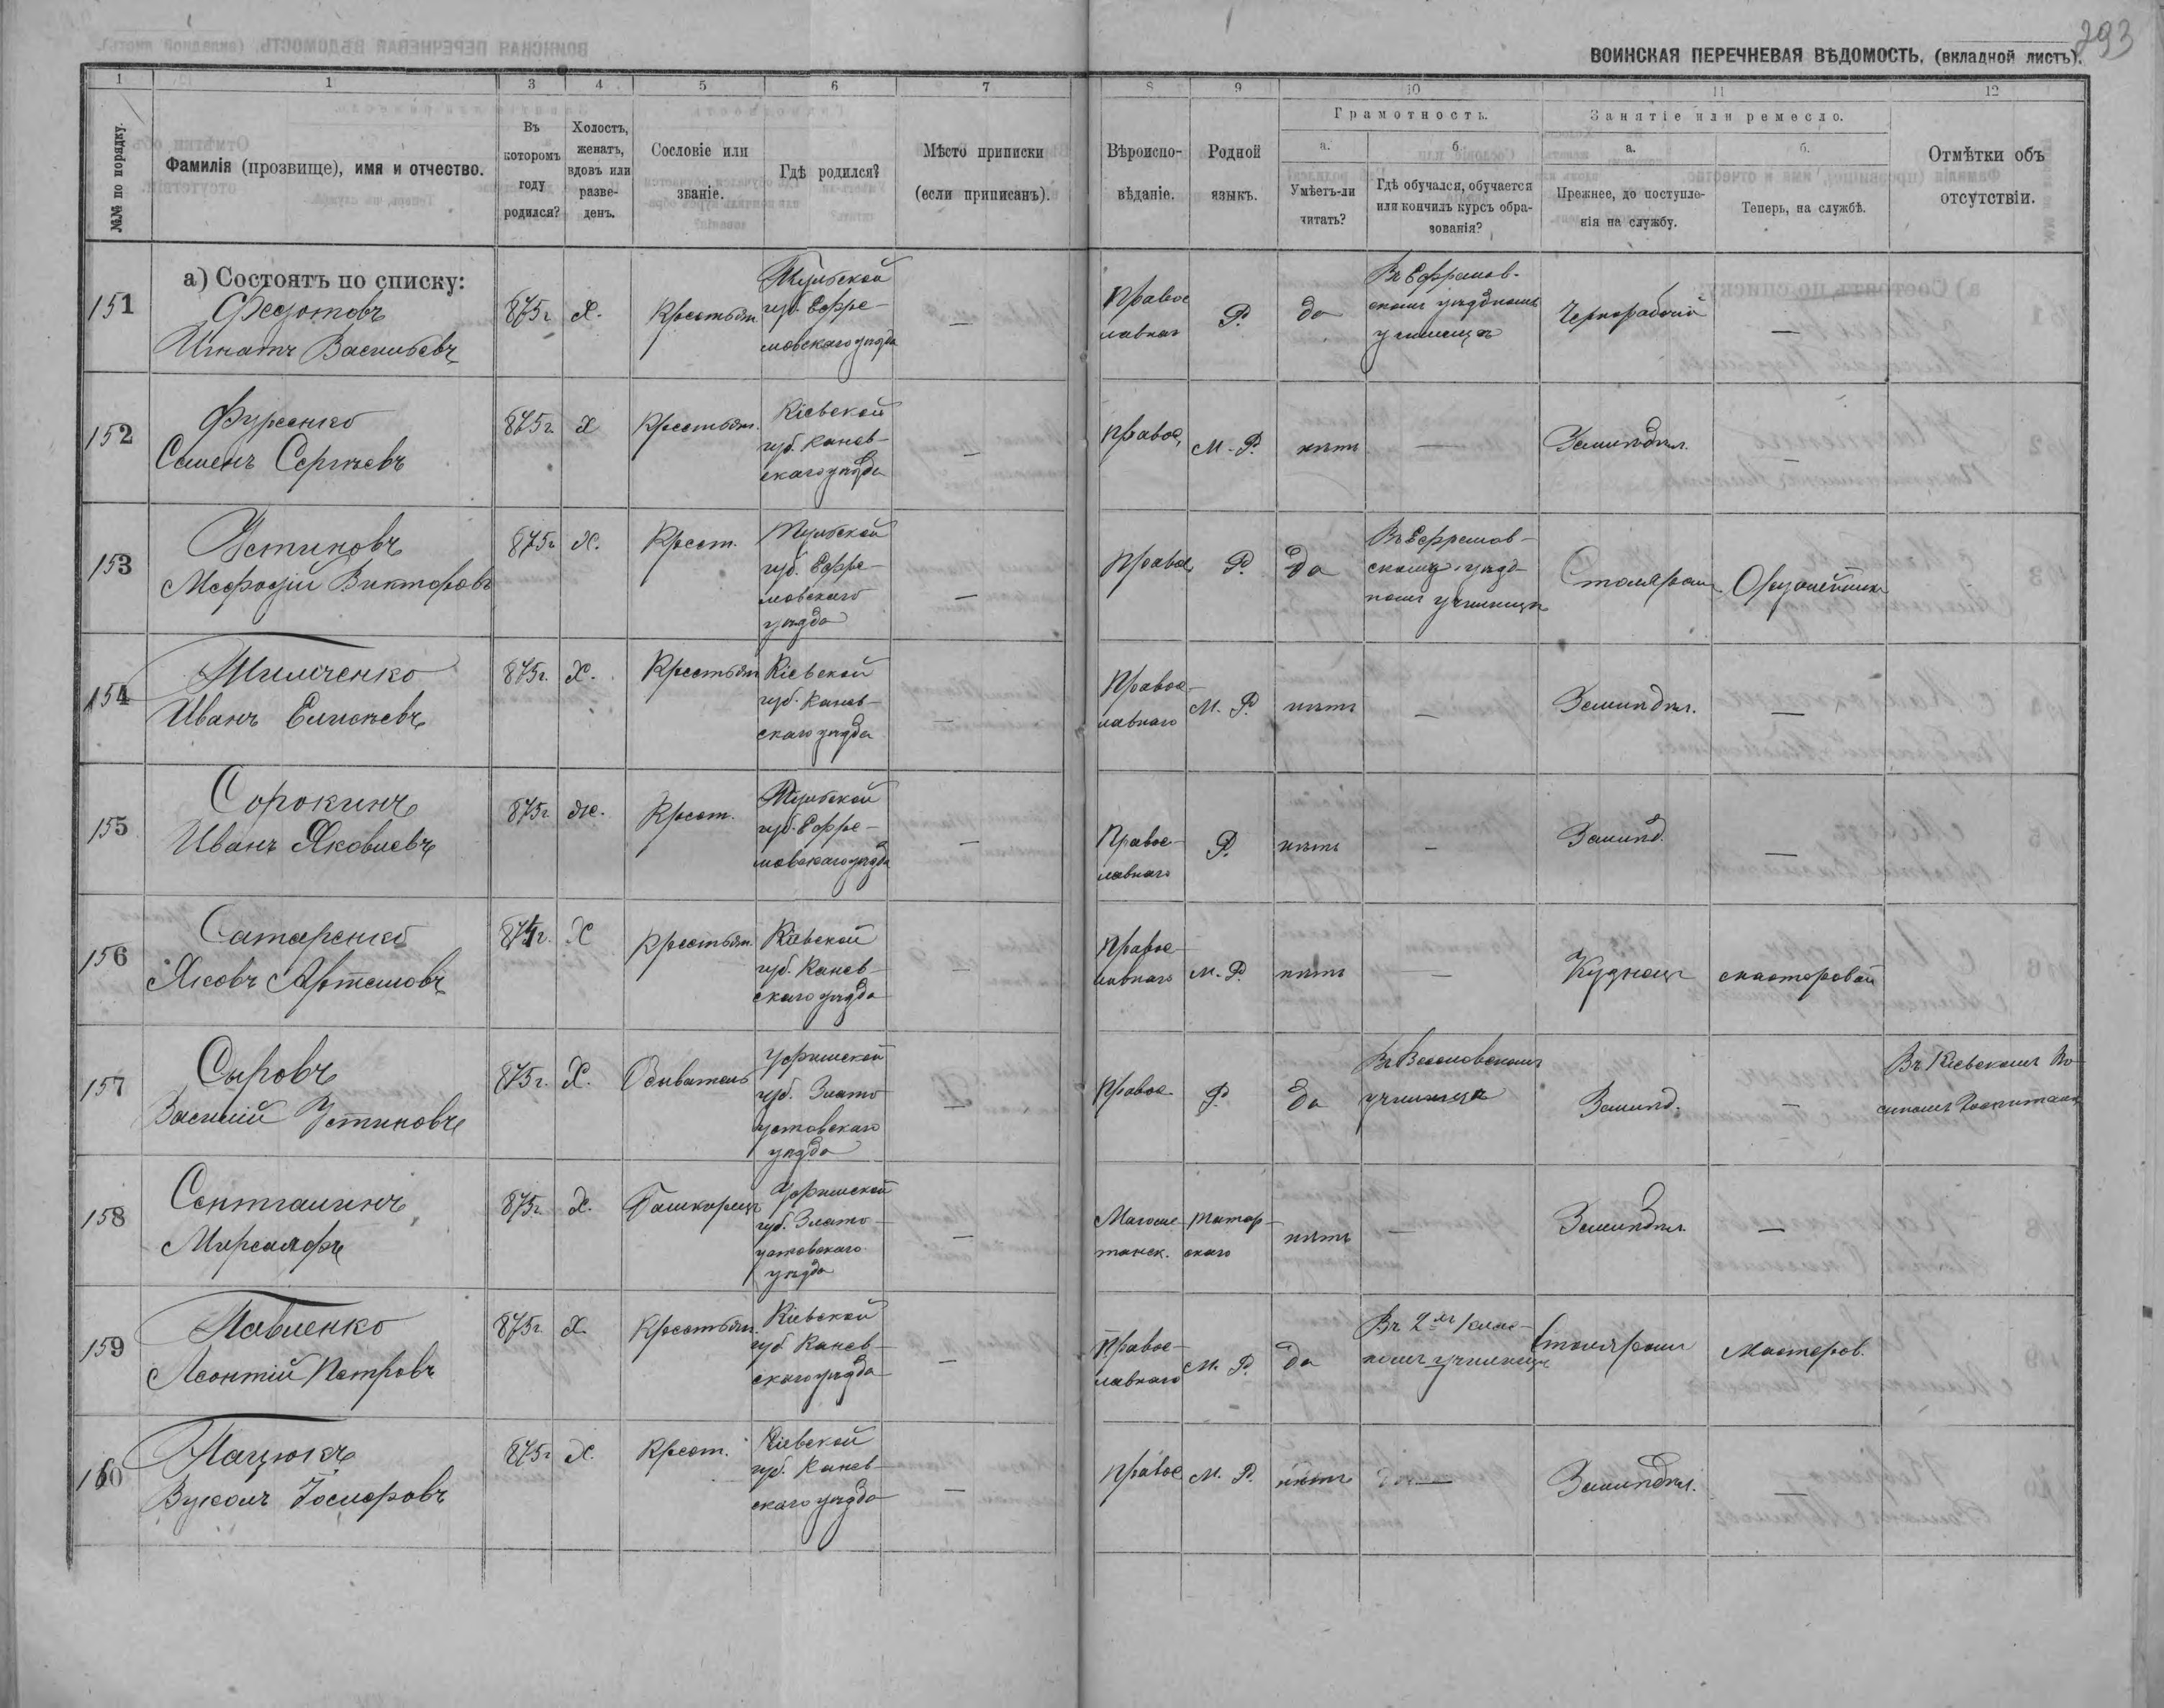 293
ВОИНСКАЯ ПЕРЕЧНЕВАЯ ВѢДОМОСТЬ, (вкладной листъ).
1 1 3 4 5 6 7 8 9 10 11 12
№№ по порядку.
Фамилія (прозвище), имя и отчество.
Въ которомъ году родился?
Холостъ, женатъ, вдовъ или разве-денъ.
Сословіе или званіе.
Гдѣ родился?
Мѣсто приписки (если приписанъ).
Вѣроиспо-вѣданіе.
Родной языкъ.
Грамотность.
а.
Умѣетъ-ли читать?
б.
Гдѣ обучался, обучается или кончилъ курсъ обра-зованія?
Занятіе или ремесло.
а.
Прежнее, до поступле-нія на службу.
б.
Теперь, на службѣ.
Отмѣтки объ отсутствіи.
а) Состоятъ по списку:
151
Федотовъ
Игнатъ Васильевъ
875г Х. Крестьян
Тульской
губ. Ефре-
мовскаго уѣзда
—
Правос
лавнаг
Р. да
Въ Ефремов-
скомъ уѣздномъ
училищѣ
Чернорабочій —
152
Фурсенко
Семенъ Сергѣевъ
875г Х Крестьян.
Кіевской
губ. Канев-
скаго уѣзда
—
Правос, М.-Р. нѣтъ — Земледѣл. —
153
Устиновъ
Мефодій Викторовъ
875г Х. Крест.
Тульской
губ. Ефре-
мовскаго
уѣзда
—
Правос, Р. Да
Въ Ефремов-
скомъ уѣзд-
номъ училищѣ
Столяръ Оружейникъ
154
Тимченко
Иванъ Елисѣевъ
875г. Х. Крестьян
Кіевской
губ. Канев-
скаго уѣзда
—
Правос-
лавнаго
М. Р. нѣтъ — Земледѣл. —
155
Сорокинъ
Иванъ Яковлевъ
875г. Ж. Крест.
Тульской
губ. Ефре-
мовскаго уѣзда
—
Правос-
лавнаго
Р. нѣтъ — Землед. —
156
Сатаренко
Яковъ Артемовъ
874г. Х Крестьян.
Кіевской
губ. Канев-
скаго уѣзда
—
Правос-
лавнаго
М. Р. нѣтъ — Кузнецъ мастеровой
157
Сыровъ
Василій Устиновъ
875г. Х.
Уфимской
губ. Злато
устовскаго
уѣзда
—
Правос. Р. Да
училищѣ
Землед. —
Въ Кіевскомъ Во-
енномъ Госпиталѣ
158
875г. Х. Башкирецъ
Уфимской
губ. Злато-
устовскаго
уѣзда
—
Магоме-
танск.
Татар-
скаго
нѣтъ — Земледѣл —
159
Павленко
Леонтій Петровъ
875г. Х. Крестьян.
Кіевской
губ Канев-
скаго уѣзда
—
Правос-
лавнаго
М. Р. да
Въ 2хъ клас-
номъ училищѣ
Столяръ Мастеров.
160
Пацюкъ
Вуколъ
875г Х. Крест.
Кіевской
губ. Канев-
скаго уѣзда
—
Правос М. Р. нѣтъ — Земледѣл. —